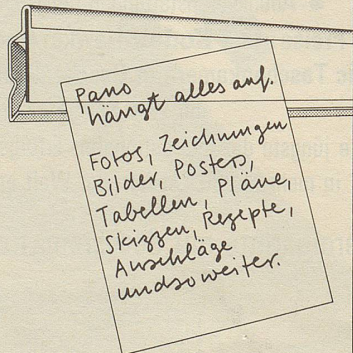 Pano
hängt alles auf.
Fotos, Zeichnungen
Bilder, Posters,
Tabellen, Pläne,
Skizzen, Rezepte,
Anschläge
undsoweiter.